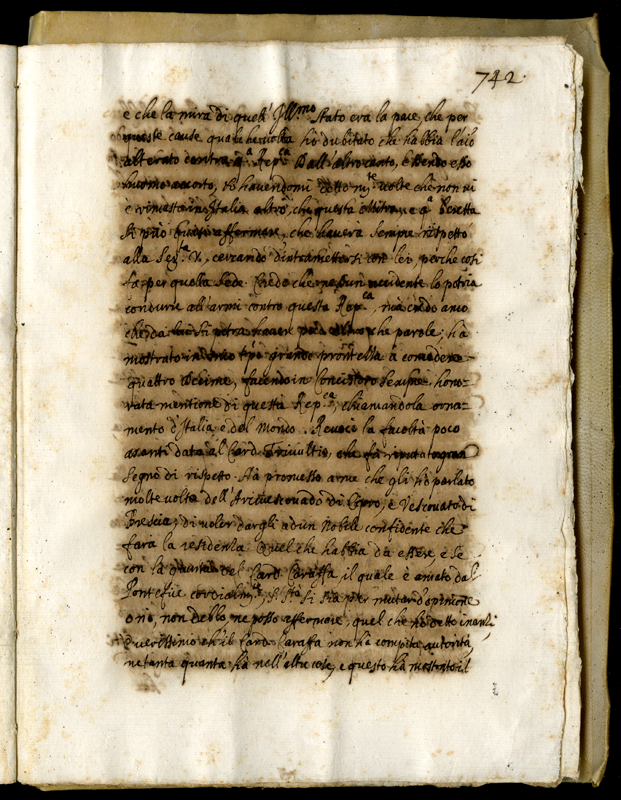 742.
e che la mira di quell' Ill.mo Stato era la pace, che per
queste cause qualche volta hò dubitato che habbia l'aio
alterato contra q.a Rep.ca Dall'altro canto, essendo esso
huomo accorto, et havendomi detto m.te volte che non vi
è rimasto in Italia altro, che questa
si può affermare, che haverà sempre rispetto
alla Ser.tà V., cercando d'intrattenersi con lei, perche così
fà per quella Sede. Credo che nessun accidente lo potria
condurre all'armi contro questa Rep.ca, mà credo anco
che da lui si potrà havere poco altro che parole; hà
mostrato in vero grande prontezza à concedere
quattro decime, facendo in Concistoro sempre hono-
rata mentione di questa Rep.ca, chiamandola orna-
mento d'Italia e del Mondo. Revocò la facoltà poco
avanti data al Card. Trivultio, che fù riputato gran
segno di rispetto. Hà promesso avne che gli hò parlato
molte volte dell'Arcivescovado di Cipro, e Vescovato di
Brescia, di voler dargli ad un Nobile confidente che
farà la residenza. Quel che habbia da essere, è se
con la giunta del Card. Caraffa il quale è amato dal
Pontefice cordialm.te, S. S.tà si sia per mutar d'opinione
ò nò, non dello ne posso affermare, quel che hò detto inanti,
è verissimo ch'il Card. Caraffa non hà compita autorità,
ne tanta quanta hà nell'altre cose, e questo hà mostrato il